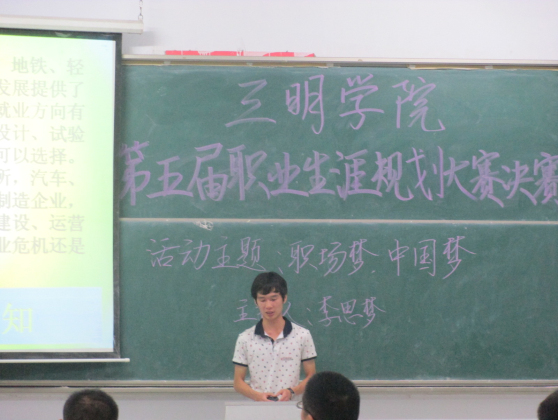 地铁、轻
发展提供了
就业方向有
设计、试验
可以选择。
所，汽车、
制造企业，
建设、运营
业危机还是
知
三明学院
第五届职业生涯规划大赛决赛
活动主题、职场梦.中国梦
主 人、李思梦